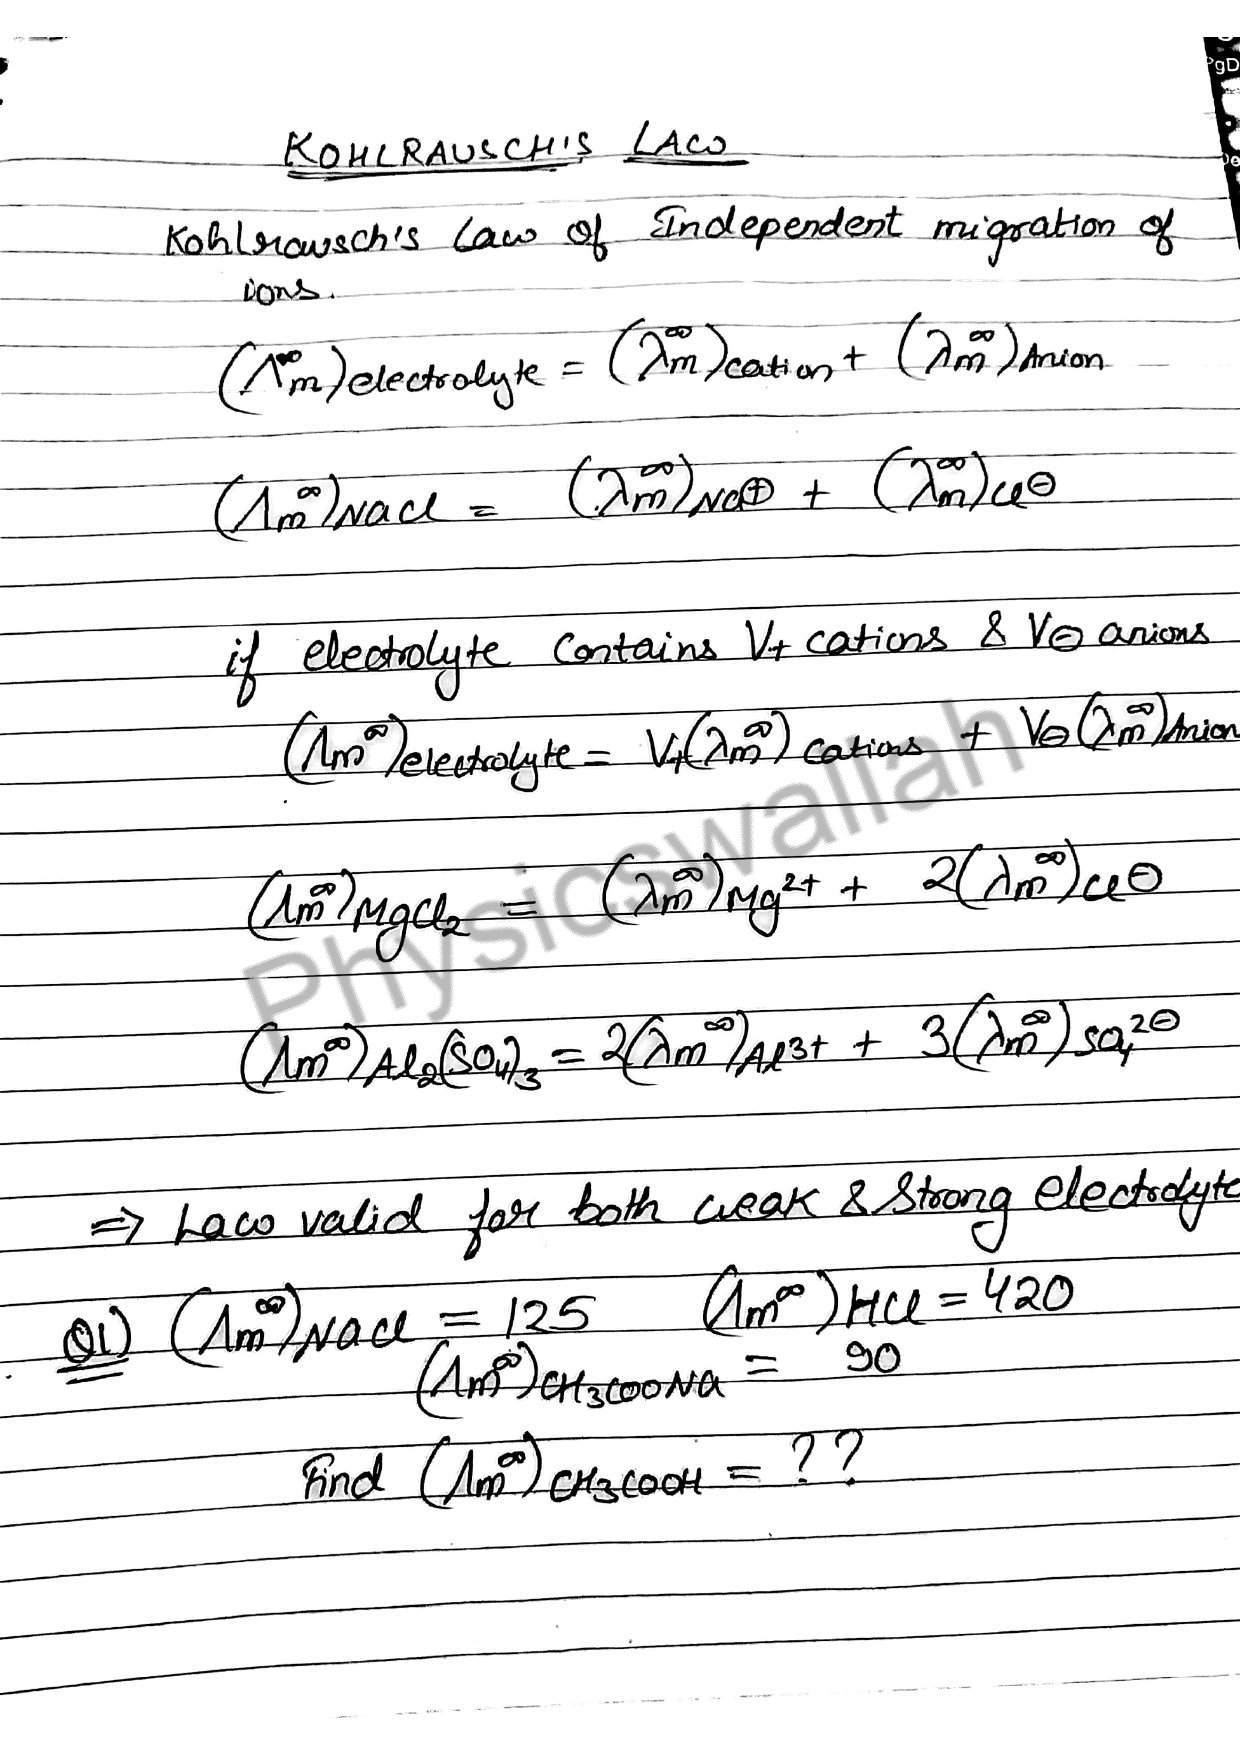 PgD
KOHLRAUSCH'S LAW
Kohlrausch's Law of Independent migration of
ions.
(Λm^∞)electrolyte = (λm^∞)cation + (λm^∞)Anion
(Λm^∞)NaCl = (λm^∞)Na⊕ + (λm^∞)Cl⊖
if electrolyte contains V+ cations & V⊖ anions
(Λm^∞)electrolyte = V+(λm^∞)cations + V⊖(λm^∞)Anion
(Λm^∞)MgCl₂ = (λm^∞)Mg²⁺ + 2(λm^∞)Cl⊖
(Λm^∞)Al₂(SO₄)₃ = 2(λm^∞)Al³⁺ + 3(λm^∞)SO₄²⊖
⇒ Law valid for both weak & Strong electrolyte
Q1) (Λm^∞)NaCl = 125 (Λm^∞)HCl = 420
(Λm^∞)CH₃COONa = 90
Find (Λm^∞)CH₃COOH = ??
Physicswallah